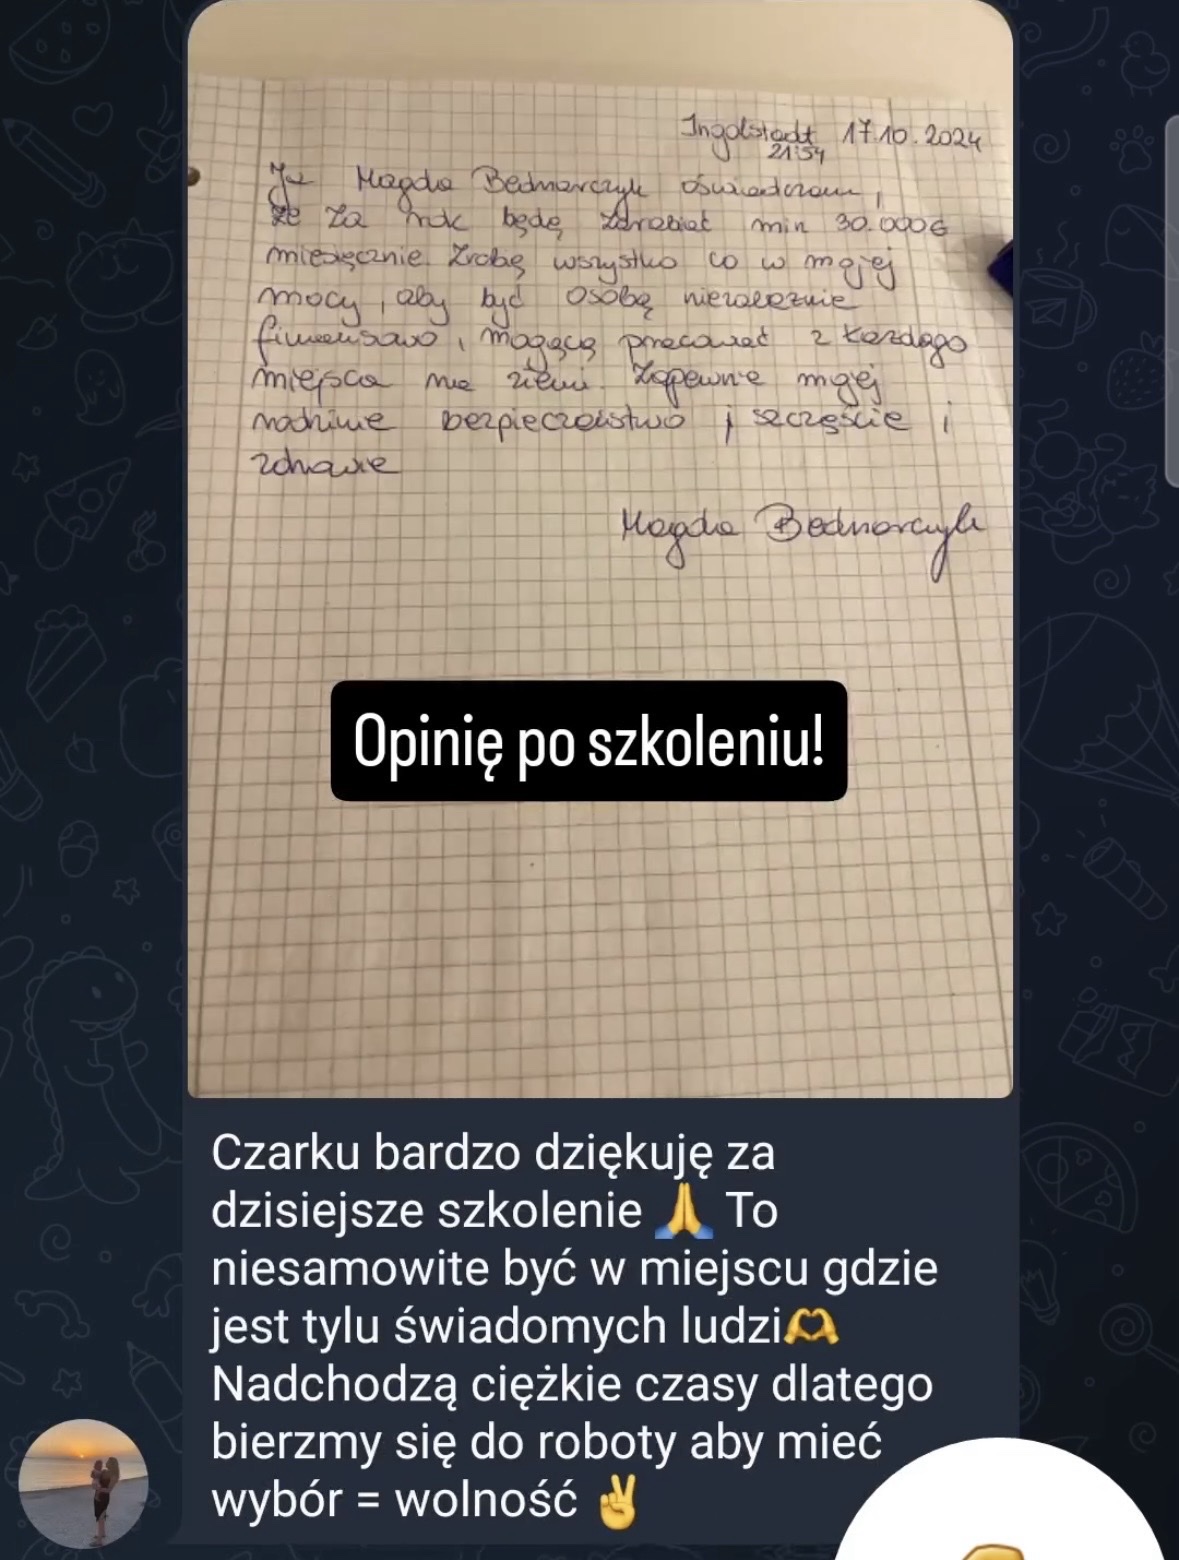 Ingolstadt 17.10.2024
21:54
Ja Magda Bednarczyk oświadczam,
że za rok będę zarabiać min 30.000€
miesięcznie. Zrobię wszystko co w mojej
mocy, aby być osobą niezależnie
finansowo, mogącą pracować z każdego
miejsca na ziemi. Zapewnię mojej
rodzinie bezpieczeństwo i szczęście i
zdrowie
Magda Bednarczyk
Opinię po szkoleniu!
Czarku bardzo dziękuję za
dzisiejsze szkolenie 🙏 To
niesamowite być w miejscu gdzie
jest tylu świadomych ludzi🫶
Nadchodzą ciężkie czasy dlatego
bierzmy się do roboty aby mieć
wybór = wolność ✌️